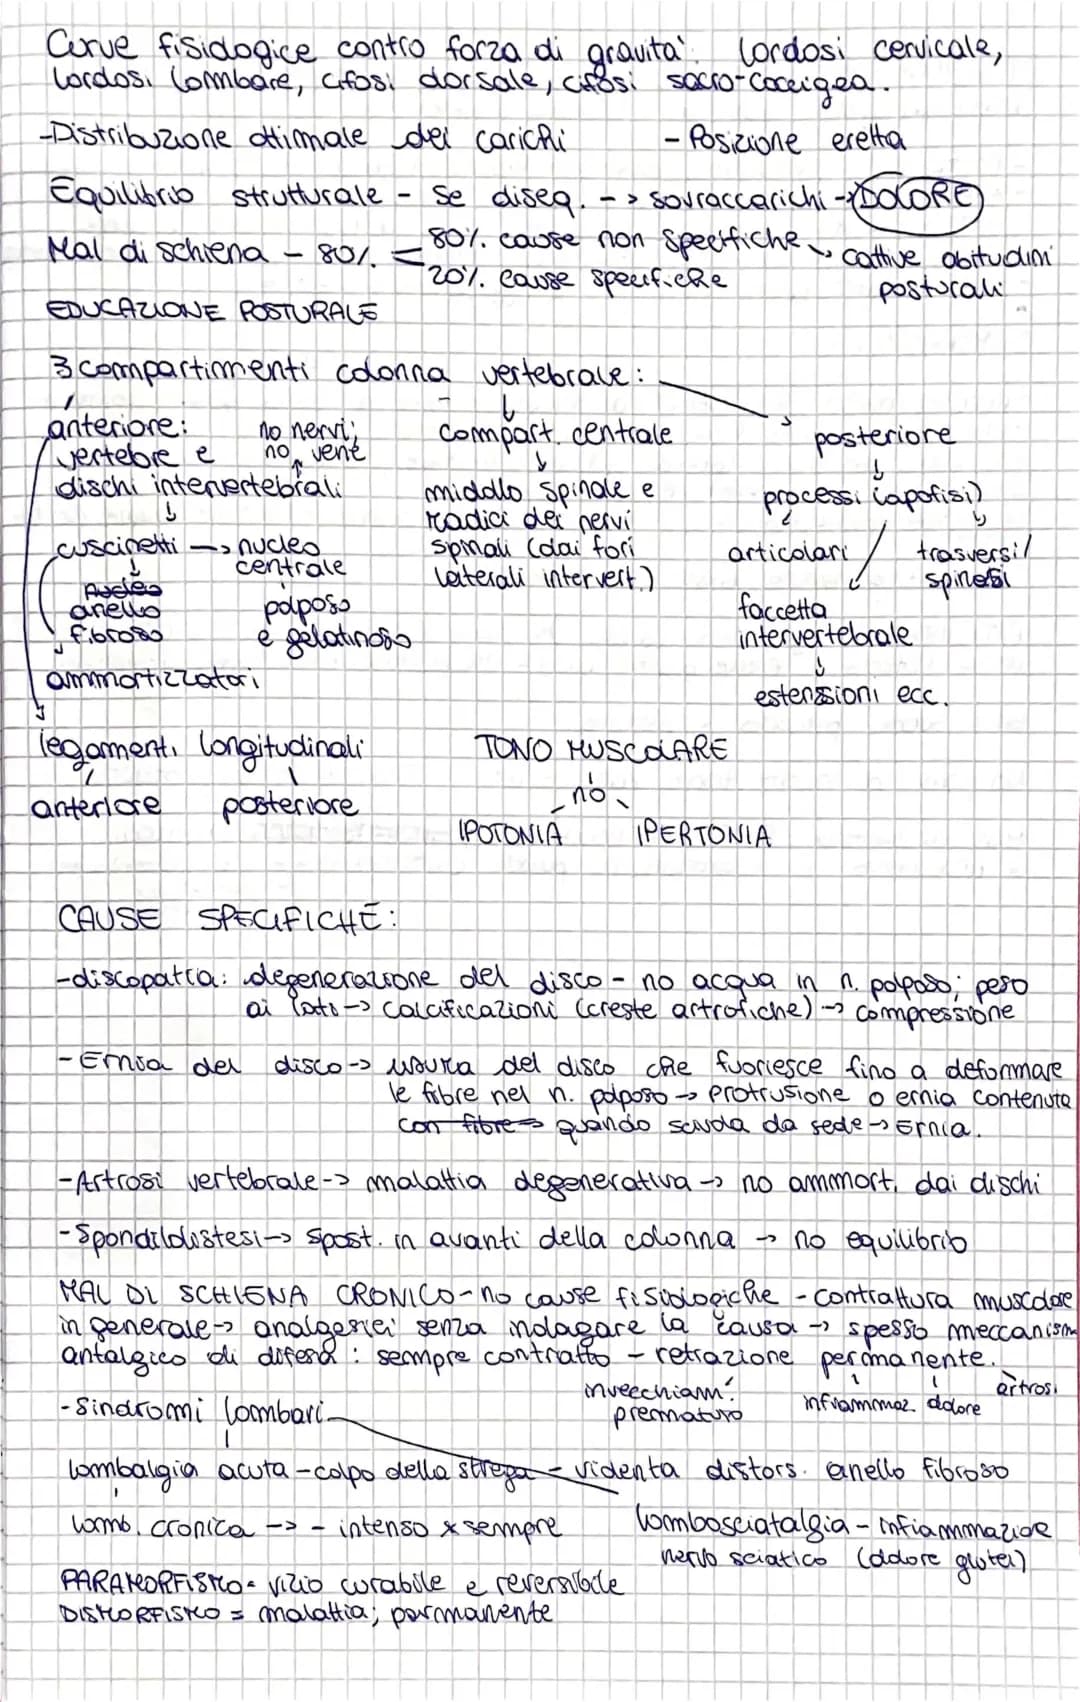 Curve fisiologice contro forza di gravità: lordosi cervicale,
lordosi lombare, cifosi dorsale, cifosi sacro-coccigea.
-Distribuzione ottimale dei carichi - Posizione eretta
Equilibrio strutturale - se diseq. -> sovraccarichi -> DOLORE
Mal di schiena - 80% = 80% cause non specifiche -> cattive abitudini posturali
20% cause specifiche
EDUCAZIONE POSTURALE
3 compartimenti colonna vertebrale:
anteriore: no nervi;
vertebre e no vene
dischi intervertebrali
cuscinetti -> nucleo centrale
nucleo
anello fibroso
polposo
e gelatinoso
ammortizzatori
legamenti longitudinali
anteriore posteriore
compart. centrale
midollo spinale e
radici dei nervi
spinali (dai fori
laterali intervert.)
posteriore
processi (apofisi)
articolari trasversi/
spinosi
faccetta
intervertebrale
estensioni ecc.
TONO MUSCOLARE
no
IPOTONIA IPERTONIA
CAUSE SPECIFICHE:
-discopatia: degenerazione del disco - no acqua in n. polposo; peso
ai lati -> calcificazioni (creste artrofiche) -> compressione
-Ernia del disco -> usura del disco che fuoriesce fino a deformare
le fibre nel n. polposo -> protrusione o ernia contenuta
con fibre -> quando scivola da sede -> Ernia.
-Artrosi vertebrale -> malattia degenerativa -> no ammort. dai dischi
-Spondilolistesi -> spost. in avanti della colonna -> no equilibrio
MAL DI SCHIENA CRONICO - no cause fisiologiche - contrattura muscolare
in generale -> analgesici senza indagare la causa -> spesso meccanism
antalgico di difesa: sempre contratto - retrazione permanente.
invecchiam. prematuro infiammaz. dolore artrosi
-Sindromi lombari
lombalgia acuta - colpo della strega - violenta distors. anello fibroso
lomb. cronica -> - intenso x sempre
lombosciatalgia - infiammazione
nervo sciatico (dolore glutei)
PARAMORFISMO = vizio curabile e reversibile
DISMORFISMO = malattia; permanente